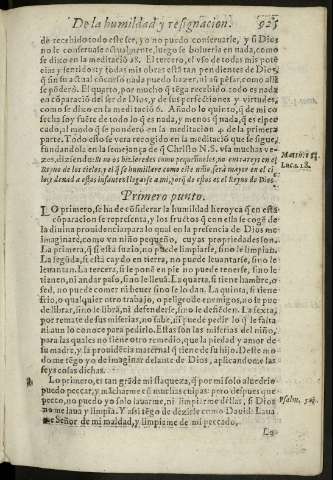 De la humildad y resignacion. 925
de recebido todo este ser, yo no puedo conseruarle, y si Dios
no le conseruase actualmente, luego se bolueria en nada, como
se dixo en la meditació 28. El tercero, el vso de todas mis potē
cias y sentidos; y todas mis obras están tan pendientes de Dios,
q̃ sin su actual concurso nada puedo hazer, ni aũ pēsar, como allí
se põderó. El quarto, por mucho q̃ tēga recebido, todo es nada
en cōparacion del ser de Dios, y de sus perfectiones y virtudes,
como se dixo en la meditació 6. Añado lo quinto, q̃ de mi co
secha soy fuere de todo lo q̃ es nada, y menos q̃ nada, q̃ es el pec
cado, al modo q̃ se ponderó en la meditacion 4. de la primera
parte. Todo esto se vera recogido en la meditació que se sigue,
fundandola en la semejança de q̃ Christo N. S. vsa muchas ve-
zes, diziendo: Si no os hizieredes como pequeñuelos, no entrareys en el
Reyno de los cielos, y el q̃ se humillare como este niño, será mayor en el ci
lo, y dexad a essos infantes llegarse a mi, porq̃ de essos es el Reyno de Dios
Matth. 18.
Luc. 18.
Primero punto.
LO primero, se ha de cōsiderar la humildad heroyca q̃ en esta
cōparacion se representa, y los fructos que con ella se coge de
la diuina prouidencia: para lo qual en la presencia de Dios me
imaginaré, como vn niño pequeño, cuyas propriedades son.
La primera, q̃ si está suzio, no puede limpiarse, sino le limpian.
La segũda, si está caydo en tierra, no puede leuantarse, sino le
leuantan. La tercera, si le ponē en pie no puede tenerse, sino le
tienen, ni andar passo, sino le lleuã. La quarta, si tiene hambre, o
sed, no puede comer ni beuer sino se lo dan. La quinta, si tiene
frio, o qualquier otro trabajo, o peligro de enemigos, no se pue
de librar, sino le librã, ni defenderse, sino le defiēdē. La sexta,
por remate de sus miserias, no sabe, ni puede pedir lo q̃ le falta
ni aun lo conoce para pedirlo. Estas son las miserias del niño,
para las quales no tiene otro remedio, que la piedad y amor de
su madre, y la prouidēcia maternal q̃ tiene de su hijo. Deste mo
do me tēgo yo de imaginar delante de Dios, aplicandome las
seys cosas dichas.
Lo primero, es tan grāde mi flaqueza, q̃ por mi solo aluedrio
puedo peccar, y mācharme cõ muchas culpas: pero despues que
pecco, no puedo yo solo lauarme, ni limpiarme dellas, si Dios
no me laua y limpia. Y assi tēgo de dezirle como Dauid: Laua
me Señor de mi maldad, y limpiame de mi peccado.
Psalm. 50.
Lo